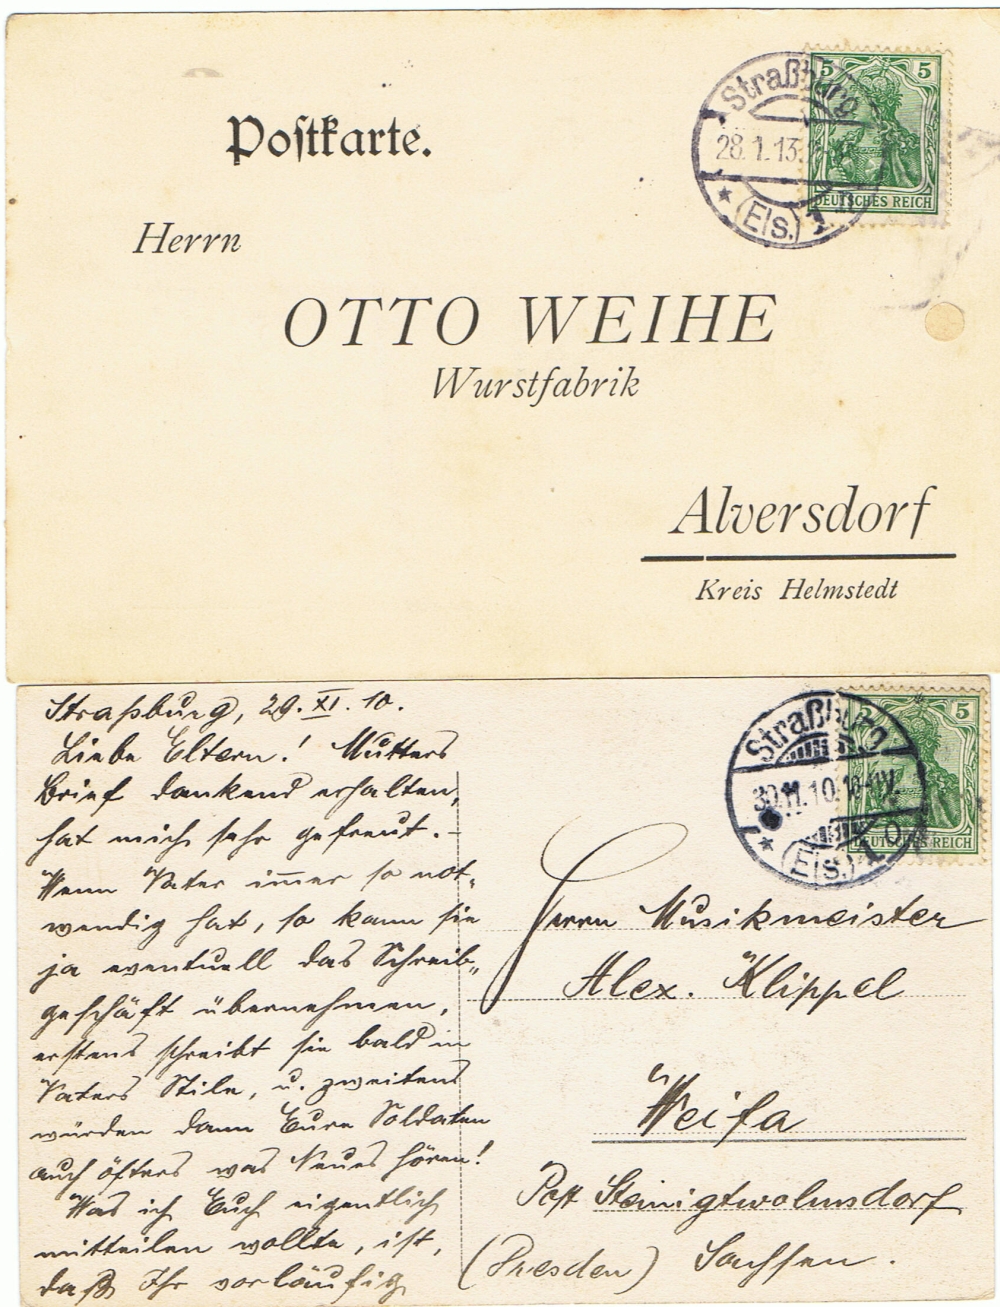 Postkarte.
Straßburg
28.1.13.
(Els.) 1 n
5 5
DEUTSCHES REICH
Herrn
OTTO WEIHE
Wurstfabrik
Alversdorf
Kreis Helmstedt
Straßburg, 29. XI. 10.
Liebe Eltern! Mutters
Brief dankend erhalten,
hat mich sehr gefreut. –
Wenn Vater immer so not-
wendig hat, so kann sie
ja eventuell das Schreib-
geschäft übernehmen,
erstens schreibt sie bald in
Vaters Stile, u. zweitens
würden dann Eure Soldaten
auch öfters was Neues hören!
Was ich Euch eigentlich
mitteilen wollte, ist,
daß Ihr vorläufig
Straßburg
30.11.10.
(Els.) 1
5
DEUTSCHES REICH
Herrn Musikmeister
Alex. Klippel
Weifa
Post Steinigtwolmsdorf
(Dresden) Sachsen.